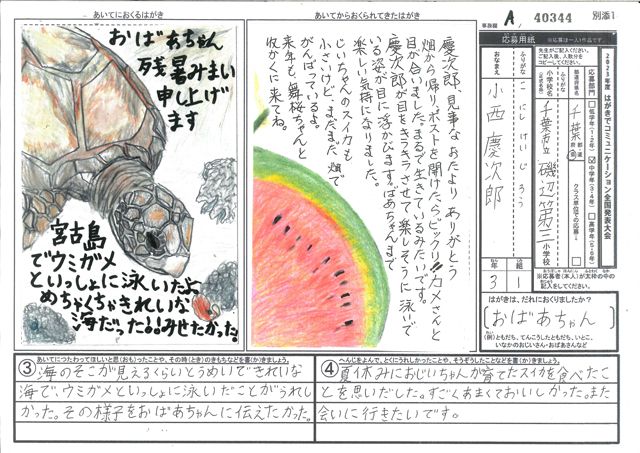 あいてにおくるはがき
おばあちゃん
残暑みまい
申し上げ
ます
宮古島
でウミガメ
といっしょに泳いだよ
めちゃくちゃきれいな
海だった。みせたかった。
あいてからおくられてきたはがき
慶次郎、見事なおたよりありがとう
畑から帰り、ポストを開けたらビックリ!!カメさんと
目が合いました。まるで生きているみたいです。
慶次郎が目をキラキラさせて楽しそうに泳いで
いる姿が目に浮かびます。ばあちゃんまで
楽しい気持になりました。
じいちゃんのスイカも
小さいけど、まだまだ畑で
がんばっているよ。
来年も、舞桜ちゃんと
収かくに来てね。
事務局
A, 40344
別添1
2023年度 はがきでコミュニケーション全国発表大会
応募用紙
※応募は一人1作品です。
先生がご記入ください。
ご記入後、人数分を
コピーしてください。
応募部門
低学年(1・2年)
中学年(3・4年)
高学年(5・6年)
都道府県名
千葉
都道府県
クラス単位での応募
ふりがな
小学校名
(正式名称)
千葉市立 磯辺第三 小学校
ふりがな
こにし けいじろう
おなまえ
小西慶次郎
年 組
3 1
※応募者(本人)が太枠の中の
記入をしてください。
はがきは、だれにおくりましたか?
おばあちゃん
(例)ともだち、てんこうしたともだち、いとこ、
いなかのおじいさん・おばあさんなど
③ あいてにつたわってほしいと思(おも)ったことや、その時(とき)のきもちなどを書(か)きましょう。
海のそこが見えるくらいとうめいできれいな
海で、ウミガメといっしょに泳いだことがうれし
かった。その様子をおばあちゃんに伝えたかった。
④ へんじをよんで、とくにうれしかったことや、そうぞうしたことなどを書(か)きましょう。
夏休みにおじいちゃんが育てたスイカを食べたこ
とを思いだした。すごくあまくておいしかった。また
会いに行きたいです。